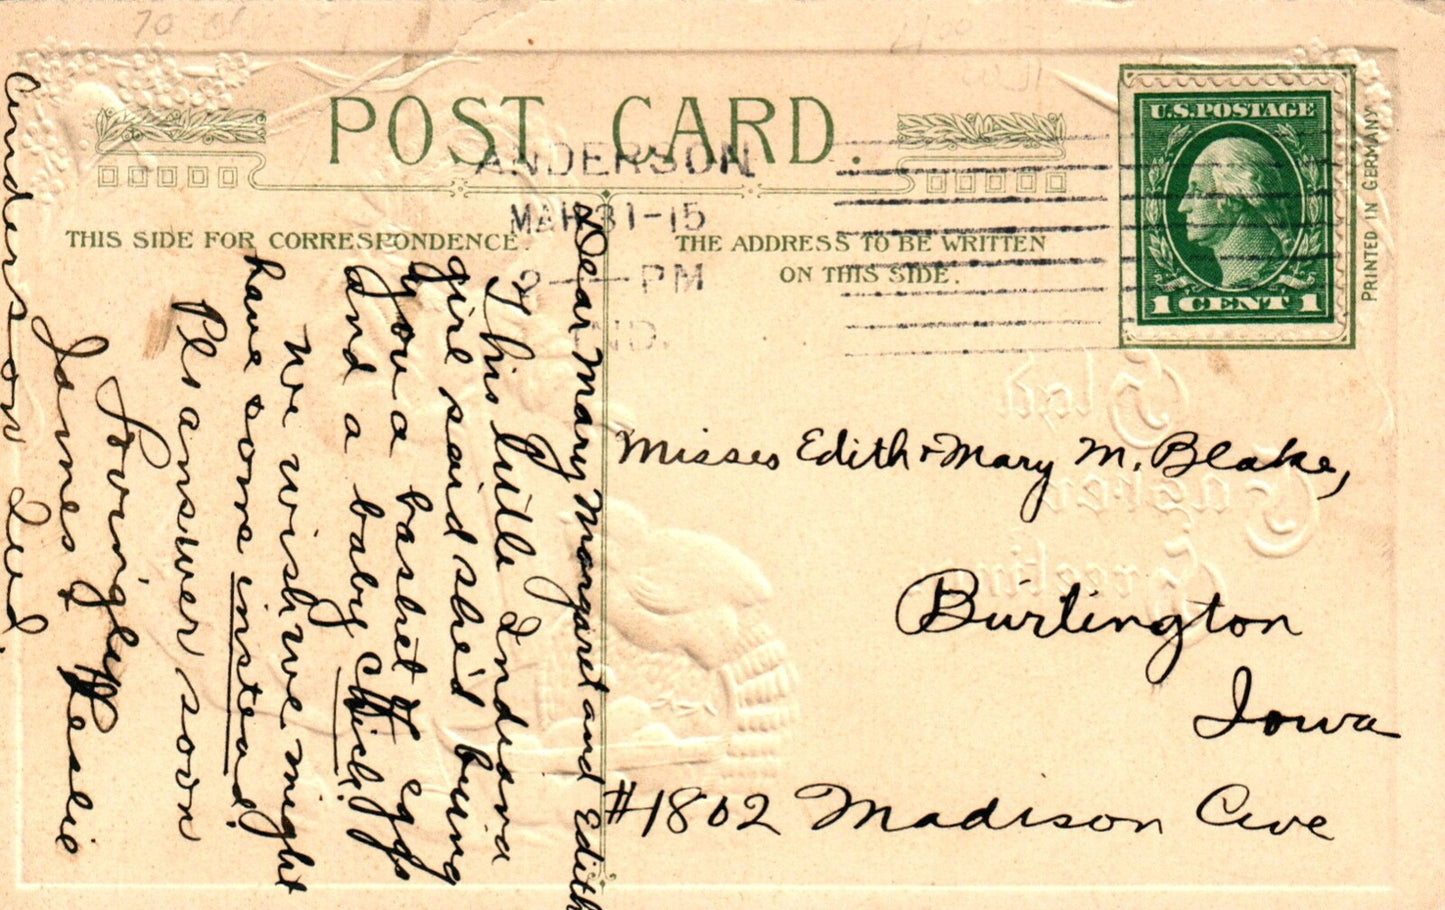 POST CARD.
ANDERSON
MAR 31-15
2 — PM
IND.
THIS SIDE FOR CORRESPONDENCE.
THE ADDRESS TO BE WRITTEN
ON THIS SIDE.
U.S. POSTAGE
1 CENT 1
PRINTED IN GERMANY
Misses Edith + Mary M. Blake,
Burlington
Iowa
#1802 Madison Ave
Dear Mary Margaret and Edith
This little Indiana
girl said she'd bring
you a basket of eggs
and a baby chick.
We wish we might
have come instead.
Pls answer soon
Lovingly
James & Leslie
Anderson Ind.
Glad
Easter
Greeting